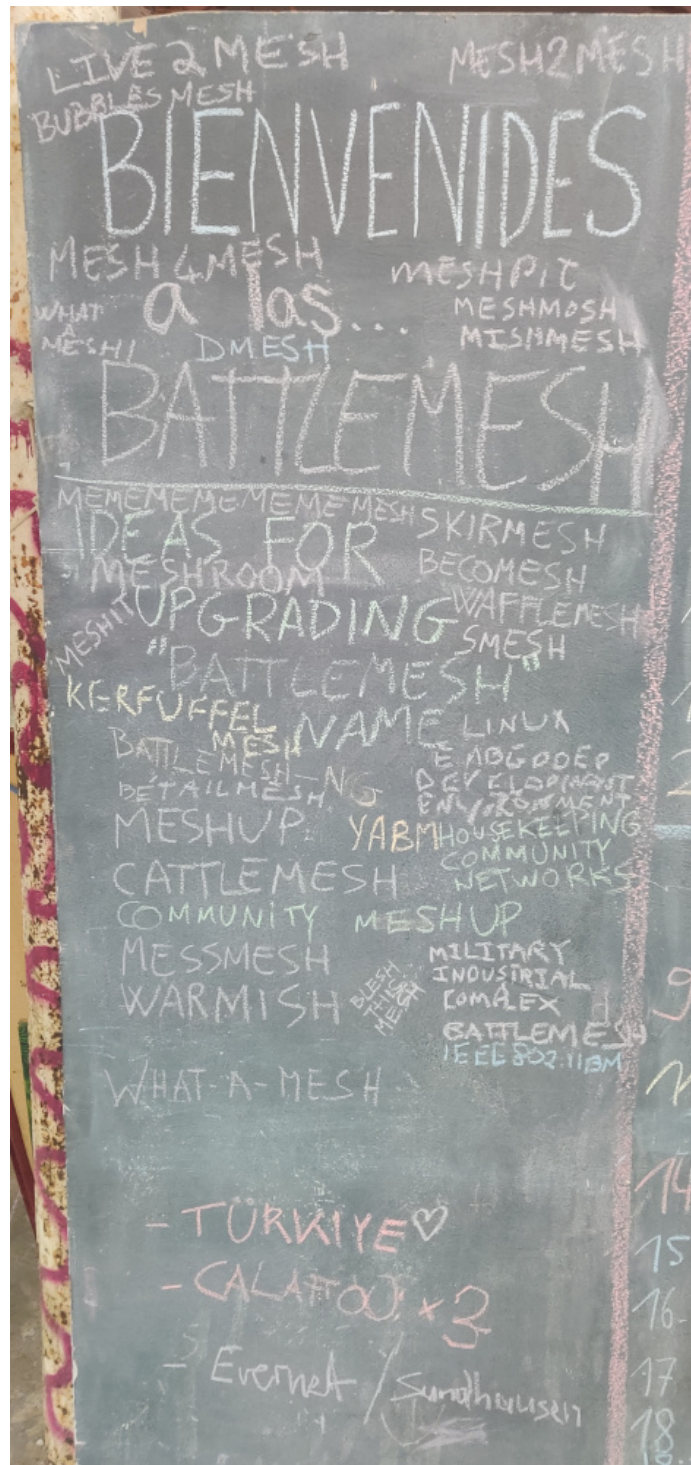 LIVE 2 MESH
MESH2MESH
BUBBLES MESH
BIENVENIDES
MESH 4 MESH
MESHPIT
a las...
WHAT
A
MESH!
MESHMOSH
MISHMESH
DMESH
BATTLEMESH
MEMEMEMEMEMEMESH
IDEAS FOR
SKIRMESH
MESHROOM
BECOMESH
MESHIT
UPGRADING
WAFFLEMESH
SMESH
"BATTLEMESH"
KERFUFFEL
MESH
NAME
LINUX
BATTLEMESH-NG
DEVELOPMENT
ENVIRONMENT
DETAILMESH
MESHUP
YABM
HOUSEKEEPING
COMMUNITY
NETWORKS
CATTLEMESH
COMMUNITY MESHUP
MESSMESH
WARMISH
BLESH
THIS
MESH
MILITARY
INDUSTRIAL
COMPLEX
BATTLEMESH
IEEE802.11BM
WHAT-A-MESH
- TÜRKIYE ♡
- CALAFOU x 3
- Evernet / Sundhausen
9
14
15
16.
17
18